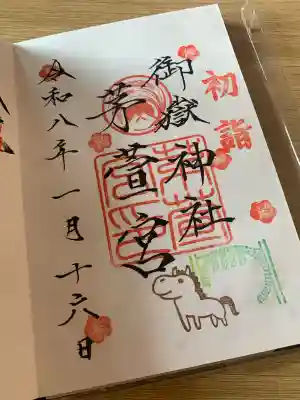 初詣
御嶽神社
茅萱宮
令和八年一月十六日